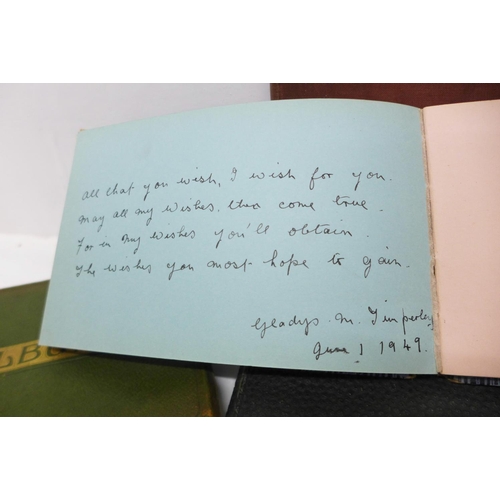 All that you wish, I wish for you.
May all my wishes, then come true.
For in my wishes you'll obtain.
The wishes you most hope to gain.
Gladys. M. Timperley
June 1 1949.
LBU